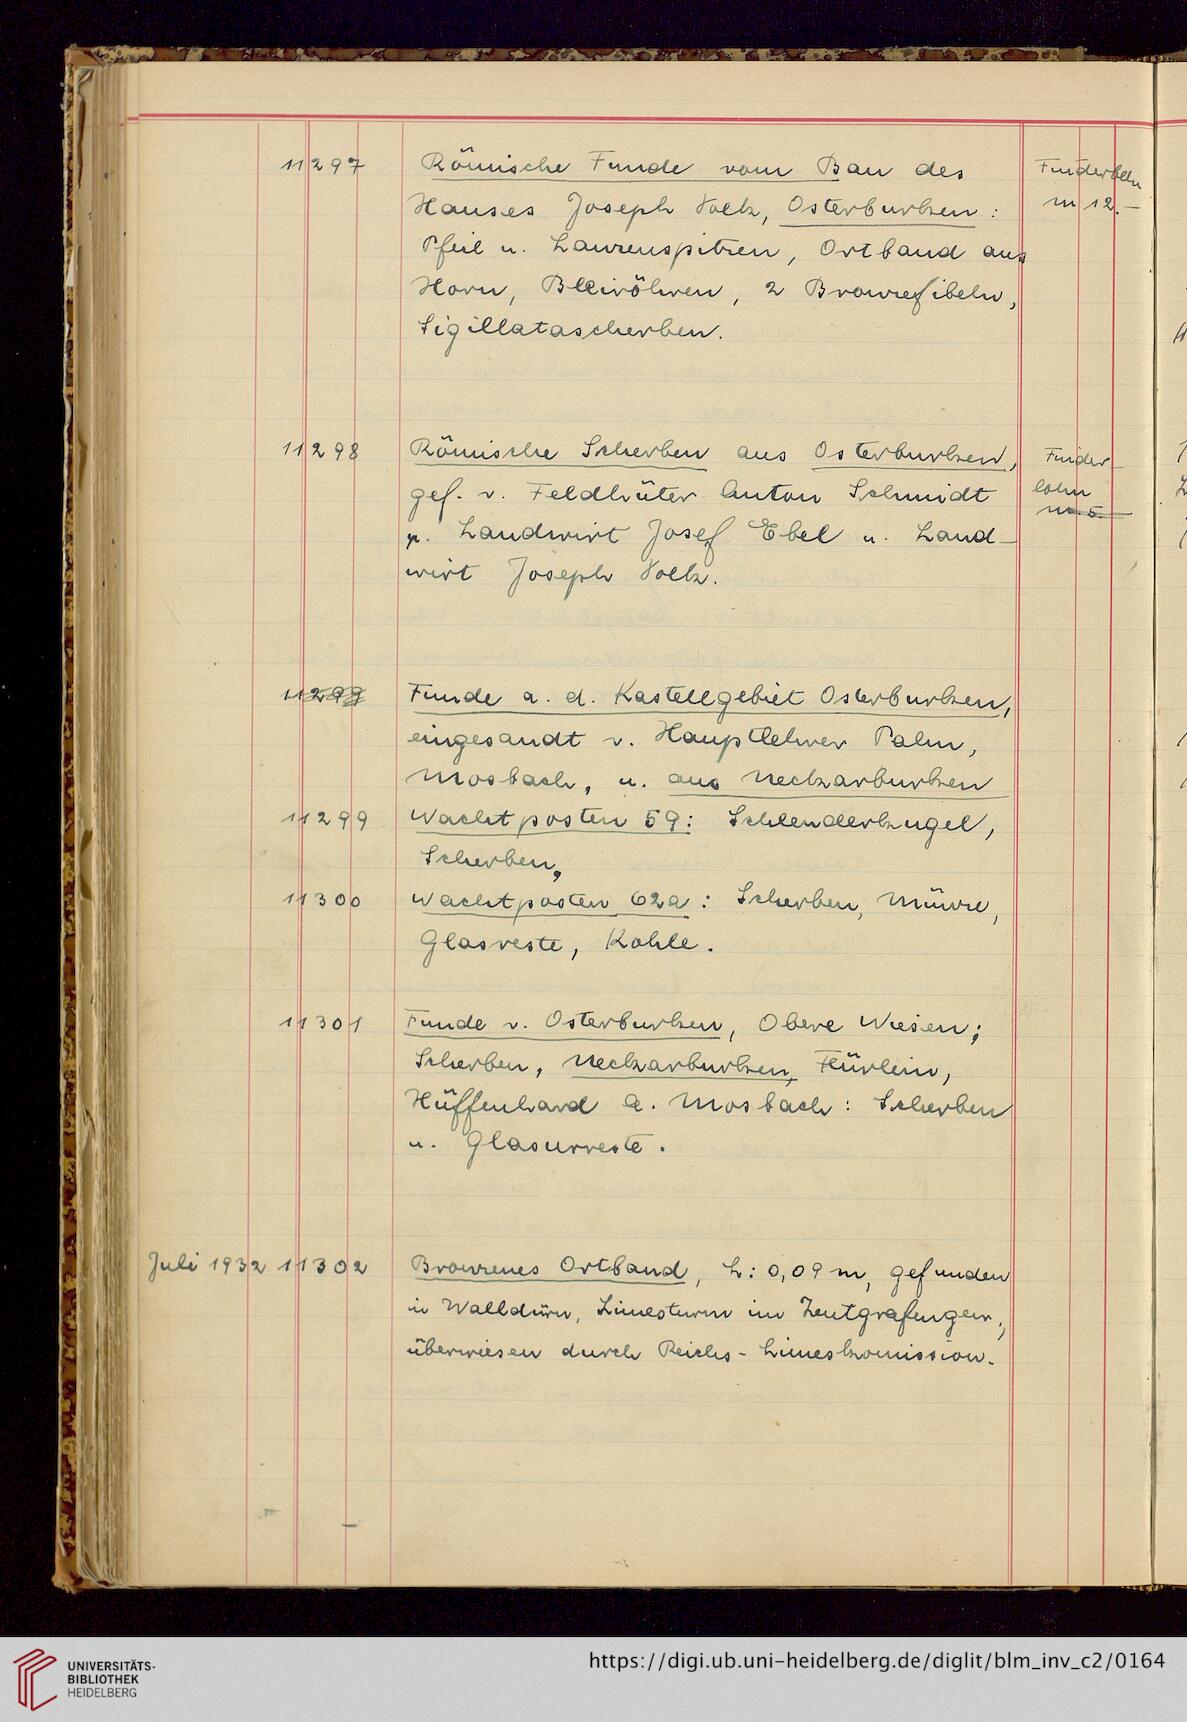 11297 Römische Funde vom Bau des Finderlohn
Hauses Joseph Volk, Osterburken : M 12.–
Pfeil u. Lanzenspitzen, Ortband aus
Horn, Bleiröhren, 2 Bronzefibeln,
Sigillatascherben.
11298 Römische Scherben aus Osterburken, Finder
gef. v. Feldhüter Anton Schmidt lohn
u. Landwirt Josef Ebel u. Land- M. 5.–
wirt Joseph Volk.
11299 Funde a. d. Kastellgebiet Osterburken,
eingesandt v. Hauptlehrer Palm,
Mosbach, u. aus Neckarburken
11299 Wachtposten 59: Schleuderkugel,
Scherben,
11300 Wachtposten 62a: Scherben, Münze,
Glasreste, Kohle.
11301 Funde v. Osterburken, Obere Wiesen;
Scherben, Neckarburken, Hürlein,
Hüffenhard a. Mosbach: Scherben
u. Glasurreste.
Juli 1932 11302 Bronzenes Ortband, L: 0,09 m, gefunden
in Walldürn, Limesturm im
überwiesen durch Reichs-Limeskomission.
UNIVERSITÄTS-
BIBLIOTHEK
HEIDELBERG
https://digi.ub.uni-heidelberg.de/diglit/blm_inv_c2/0164